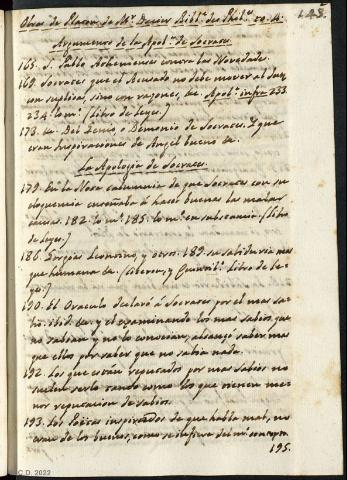 148.
Obras de Platon, de Mr. Dacier Bibl.ª de Phel.s to. 4.
Argumento de la Apol.ª de Socrates.
165. S. Pablo Atheniense contra las Novedades.
169. Socrates que el Acusado no debe mover al Juez
con suplicas, sino con razones, &c. Apol.ª infra 233.
234. lo m.º (Libro de Leyes.)
173. &c. Del Genio, o Demonio de Socrates. I que
eran Inspiraciones de Angel bueno &c.
La Apología de Socrates.
179. En la Nota calumnia de que Socrates con su
eloquencia enseñaba á hacer buenas las malas
causas. 182. lo m.º 185. lo m.º en substancia. (Libro
de Leyes.)
186. Gorgias Leontino, y otros. 189. su sabiduria mas
que humana &c. (Ciceron, y Quintil.º Libro de Le-
yes.)
190. El Oraculo declaró á Socrates por el mas sa-
bio. ibid. &c. y el examinando los mas sabios, que
no sabian y no lo conocian, alcanzó saber mas
que ellos por saber que no sabia nada.
192. Los que están reputados por mas sabios no
suelen serlo tanto como los que tienen me-
nor reputacion de sabios.
193. Los Poetas inspirados de que habla mal, no
eran de los buenos, como se infiere del m.º contexto
195.
C.D. 2022